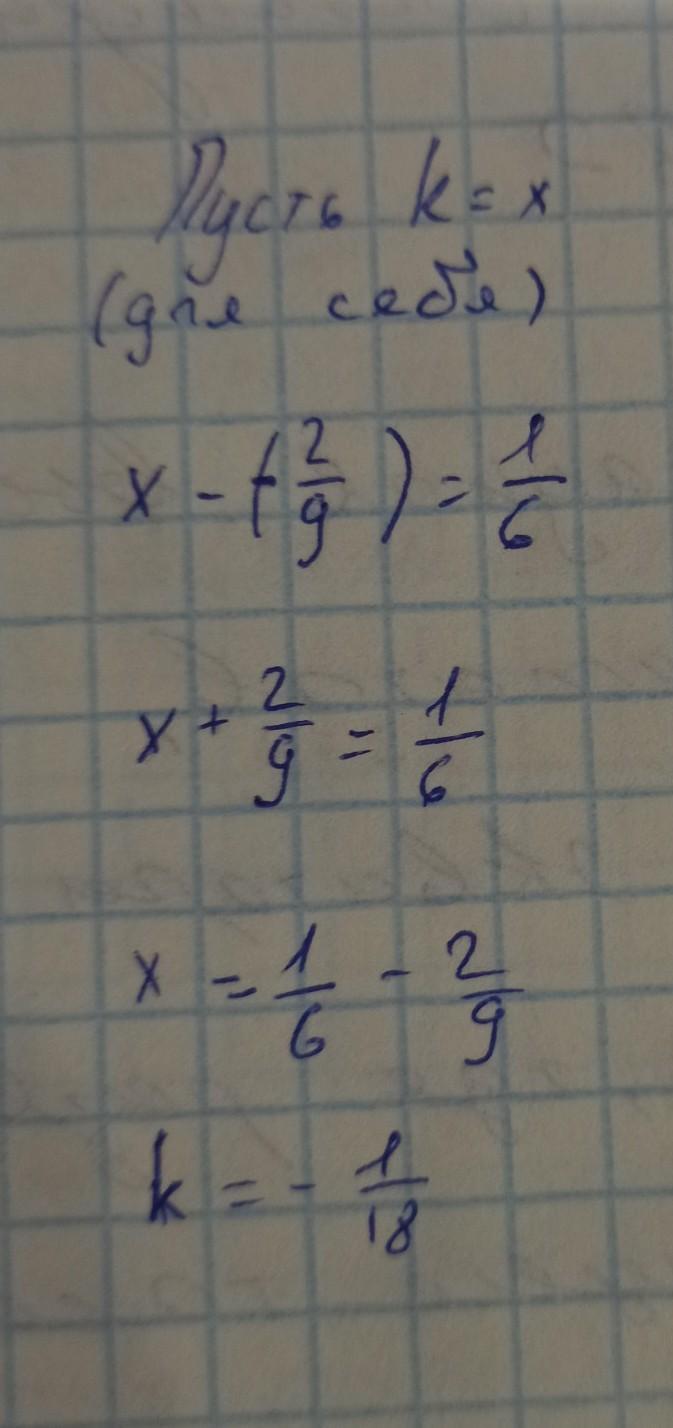 Пусть k = x
(для себя)
x - (-2/9) = 1/6
x + 2/9 = 1/6
x = 1/6 - 2/9
k = - 1/18